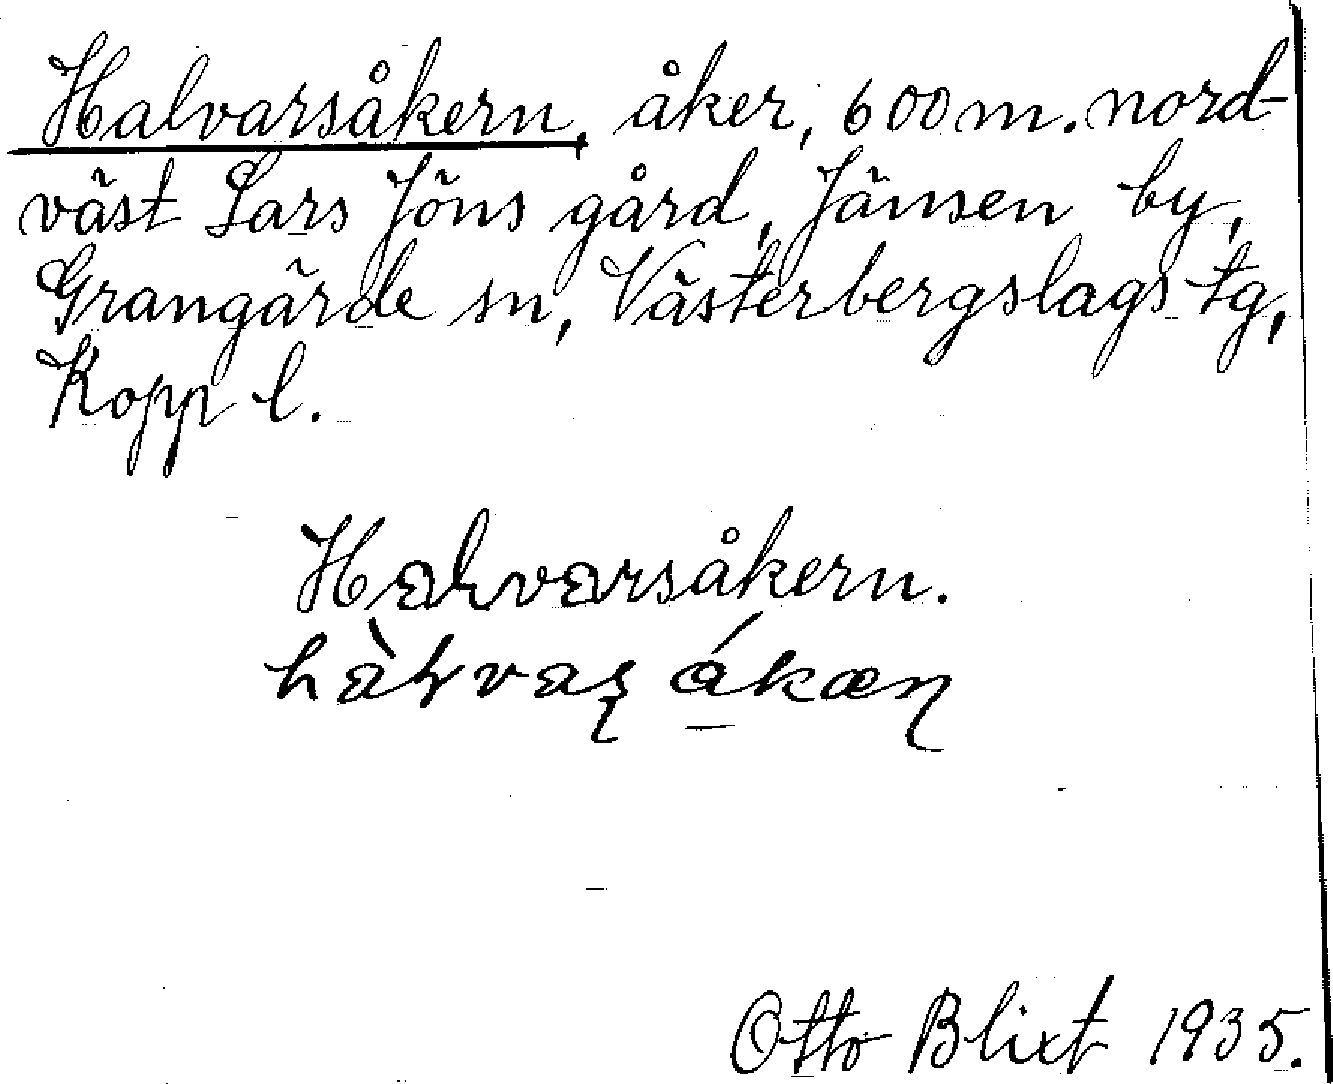 Halvarsåkern, åker, 600 m. nord-
väst Lars Jöns gård, Jänsen by,
Grangärde sn, Västerbergslags tg,
Kopp l.
Halvarsåkern.
hàɽvaʂ ákæɳ
Otto Blixt 1935.